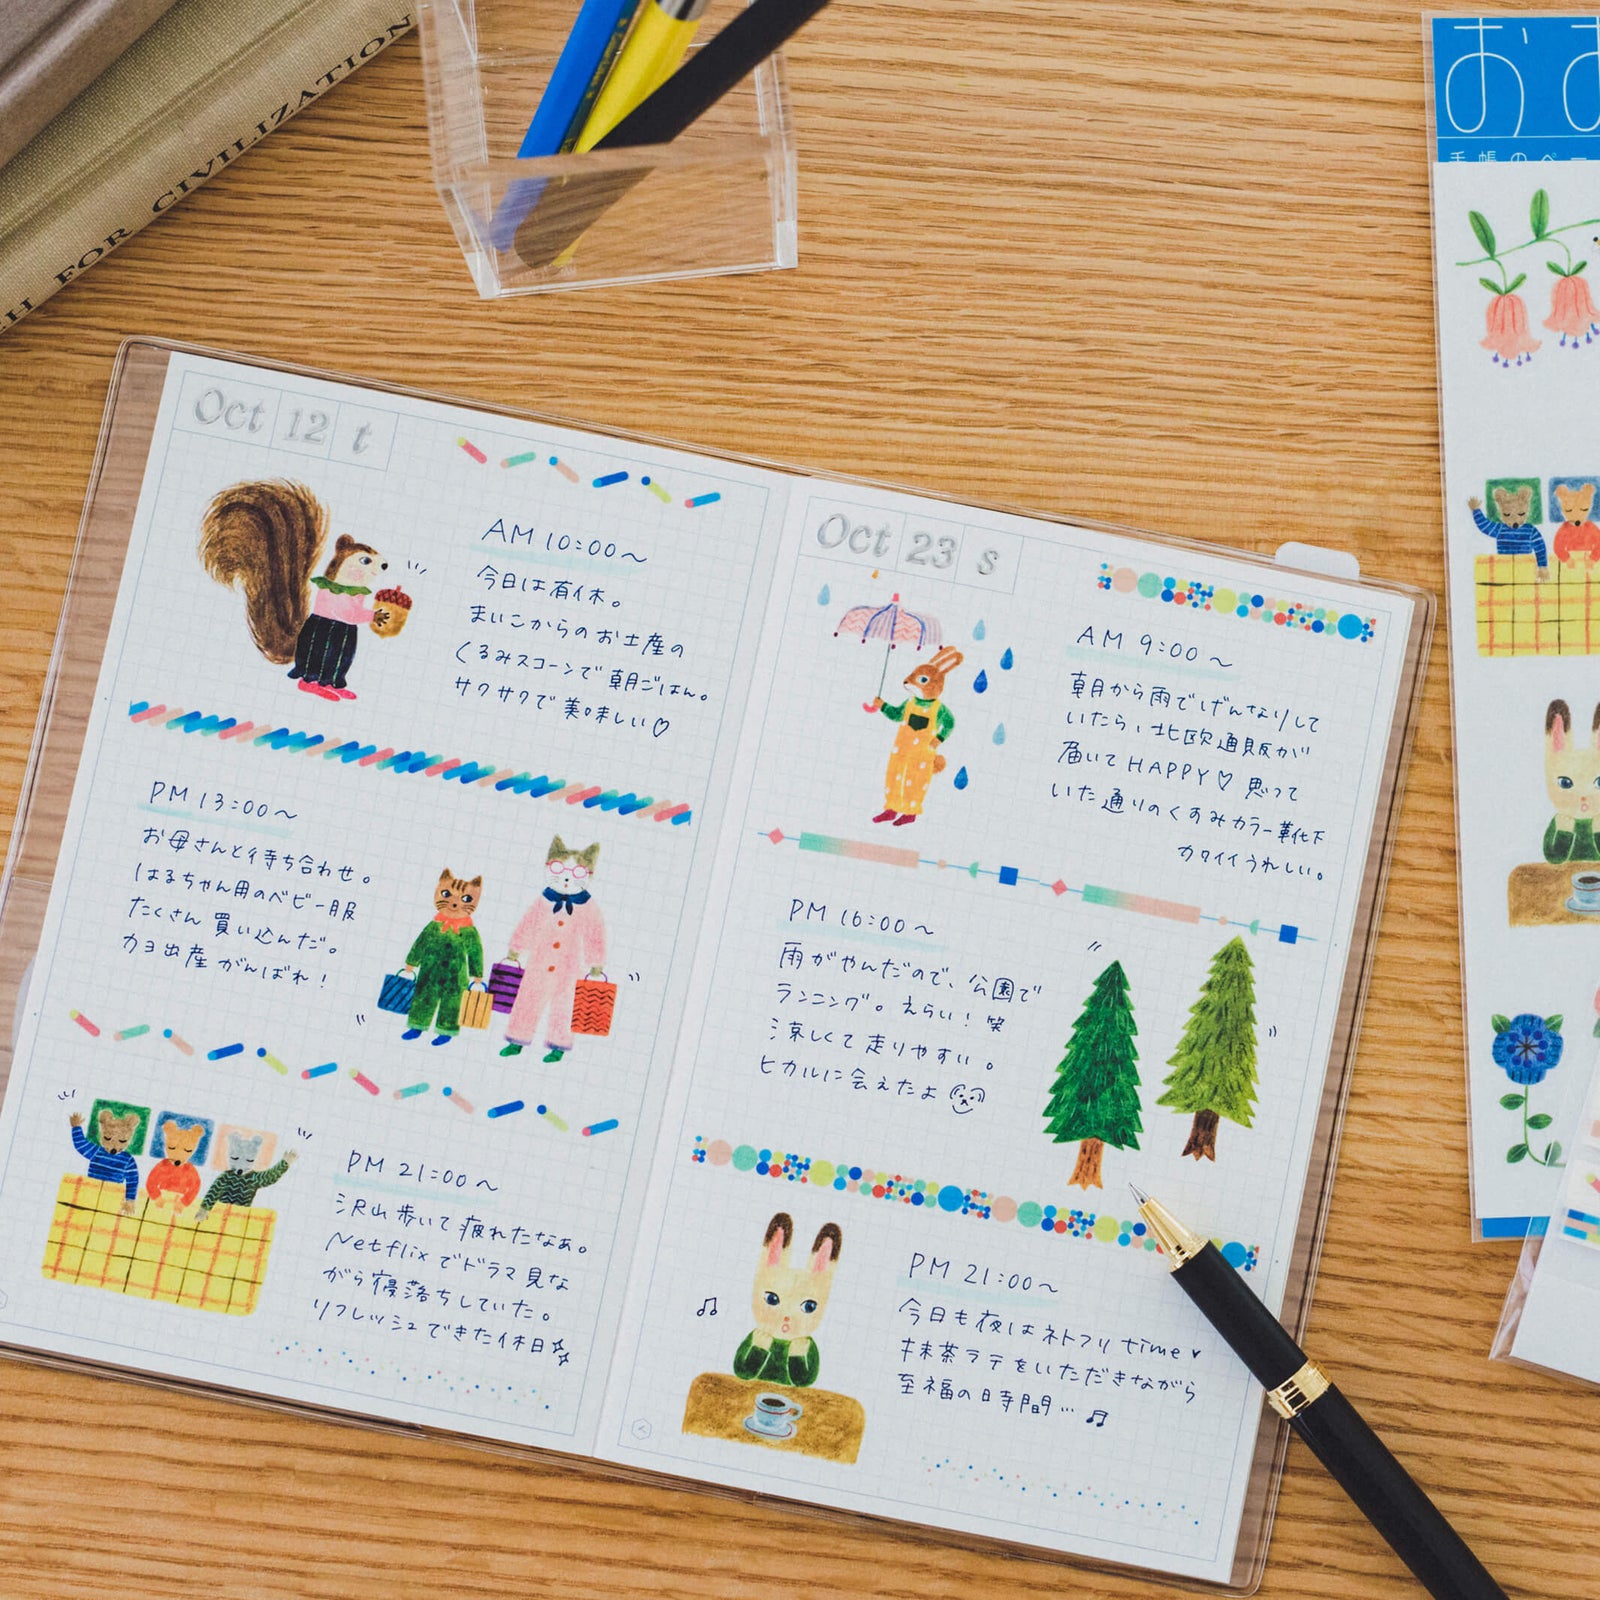 FOR CIVILIZATION
おお
手帳のペー
Oct 12 t
AM 10:00〜
今日は有休。
まいこからのお土産の
くるみスコーンで朝ごはん。
サクサクで美味しい♡
PM 13:00〜
お母さんと待ち合わせ。
はるちゃん用のベビー服
たくさん買い込んだ。
カヨ出産がんばれ！
PM 21:00〜
沢山歩いて疲れたなあ。
Netflixでドラマ見な
がら寝落ちしていた。
リフレッシュできた休日
Oct 23 s
AM 9:00〜
朝から雨でげんなりして
いたら、北欧通販が
届いてHAPPY♡ 思って
いた通りのくすみカラー靴下
カワイイうれしい。
PM 16:00〜
雨がやんだので、公園で
ランニング。えらい！笑
涼しくて走りやすい。
ヒカルに会えたよ
PM 21:00〜
今日も夜はネトフリtime♥
抹茶ラテをいただきながら
至福の日時間…♫